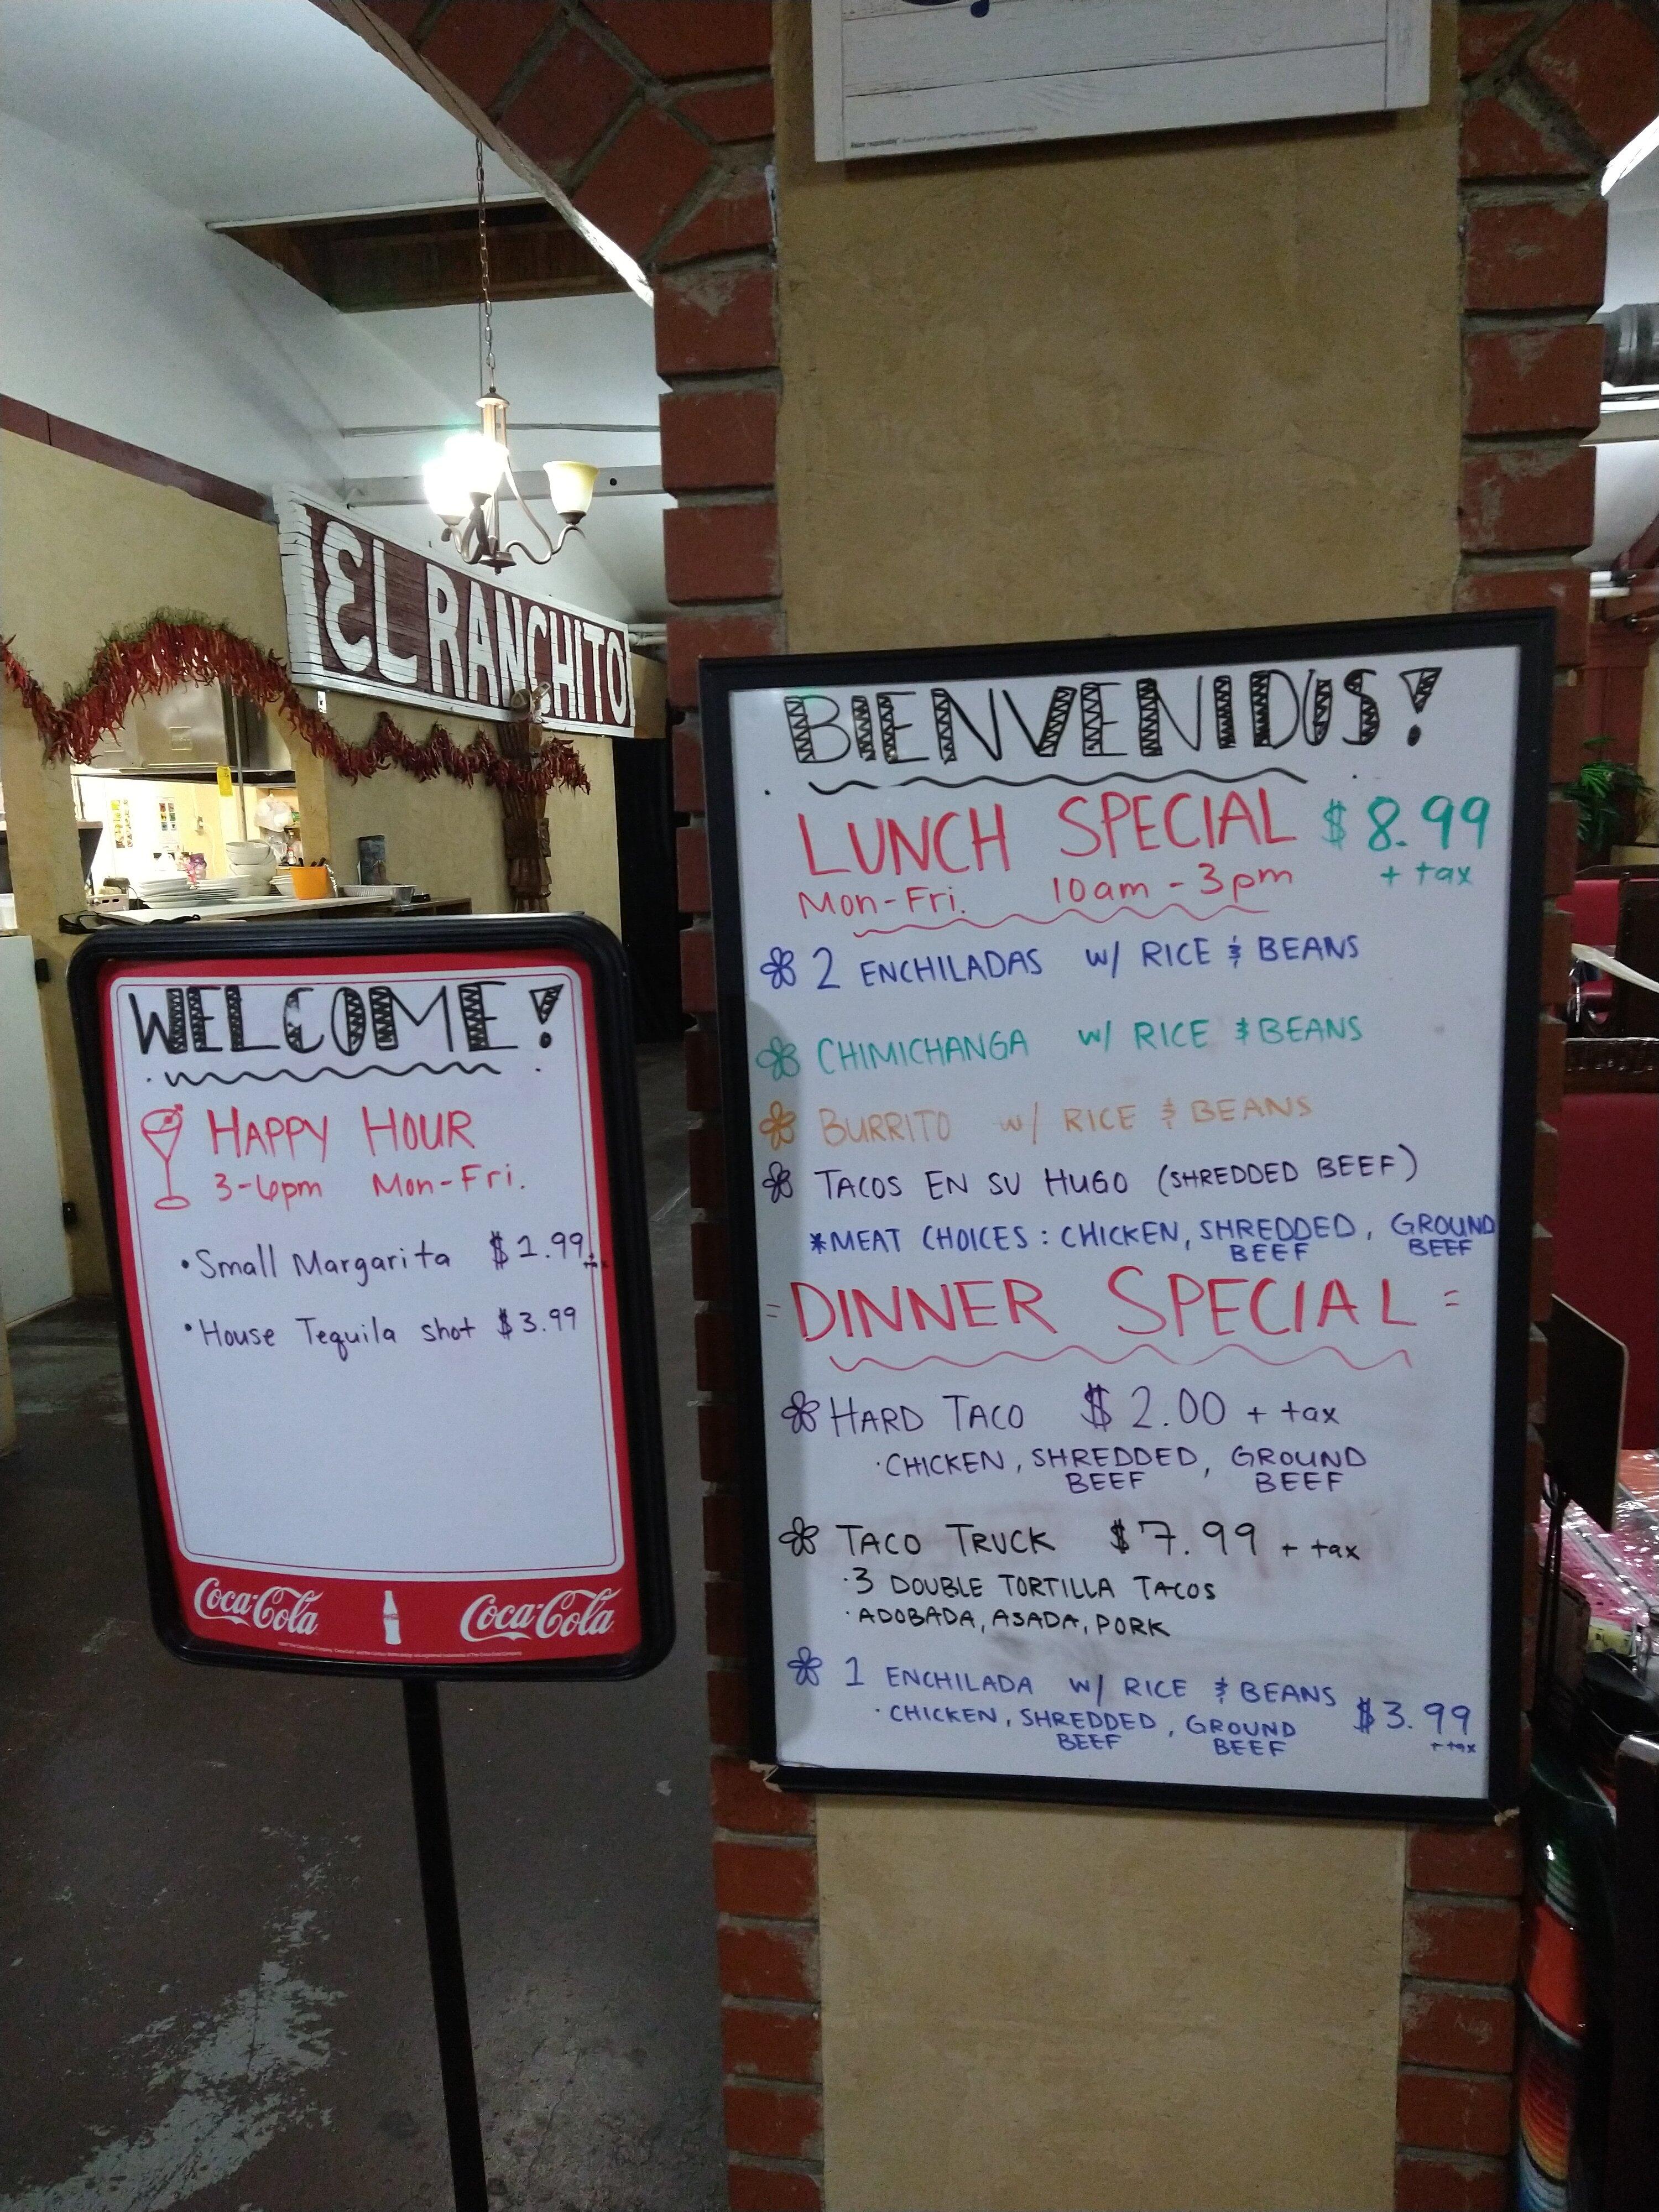 EL RANCHITO
WELCOME!
HAPPY HOUR
3-6pm Mon-Fri.
•Small Margarita $1.99
•House Tequila shot $3.99
Coca-Cola Coca-Cola
BIENVENIDOS!
LUNCH SPECIAL $8.99
+ tax
Mon-Fri. 10am - 3pm
2 ENCHILADAS w/ RICE & BEANS
CHIMICHANGA w/ RICE & BEANS
BURRITO w/ RICE & BEANS
TACOS EN SU HUGO (SHREDDED BEEF)
*MEAT CHOICES: CHICKEN, SHREDDED, GROUND
BEEF BEEF
=DINNER SPECIAL=
HARD TACO $2.00 + tax
·CHICKEN, SHREDDED, GROUND
BEEF BEEF
TACO TRUCK $7.99 + tax
·3 DOUBLE TORTILLA TACOS
·ADOBADA, ASADA, PORK
1 ENCHILADA w/ RICE & BEANS $3.99
+ tax
·CHICKEN, SHREDDED, GROUND
BEEF BEEF